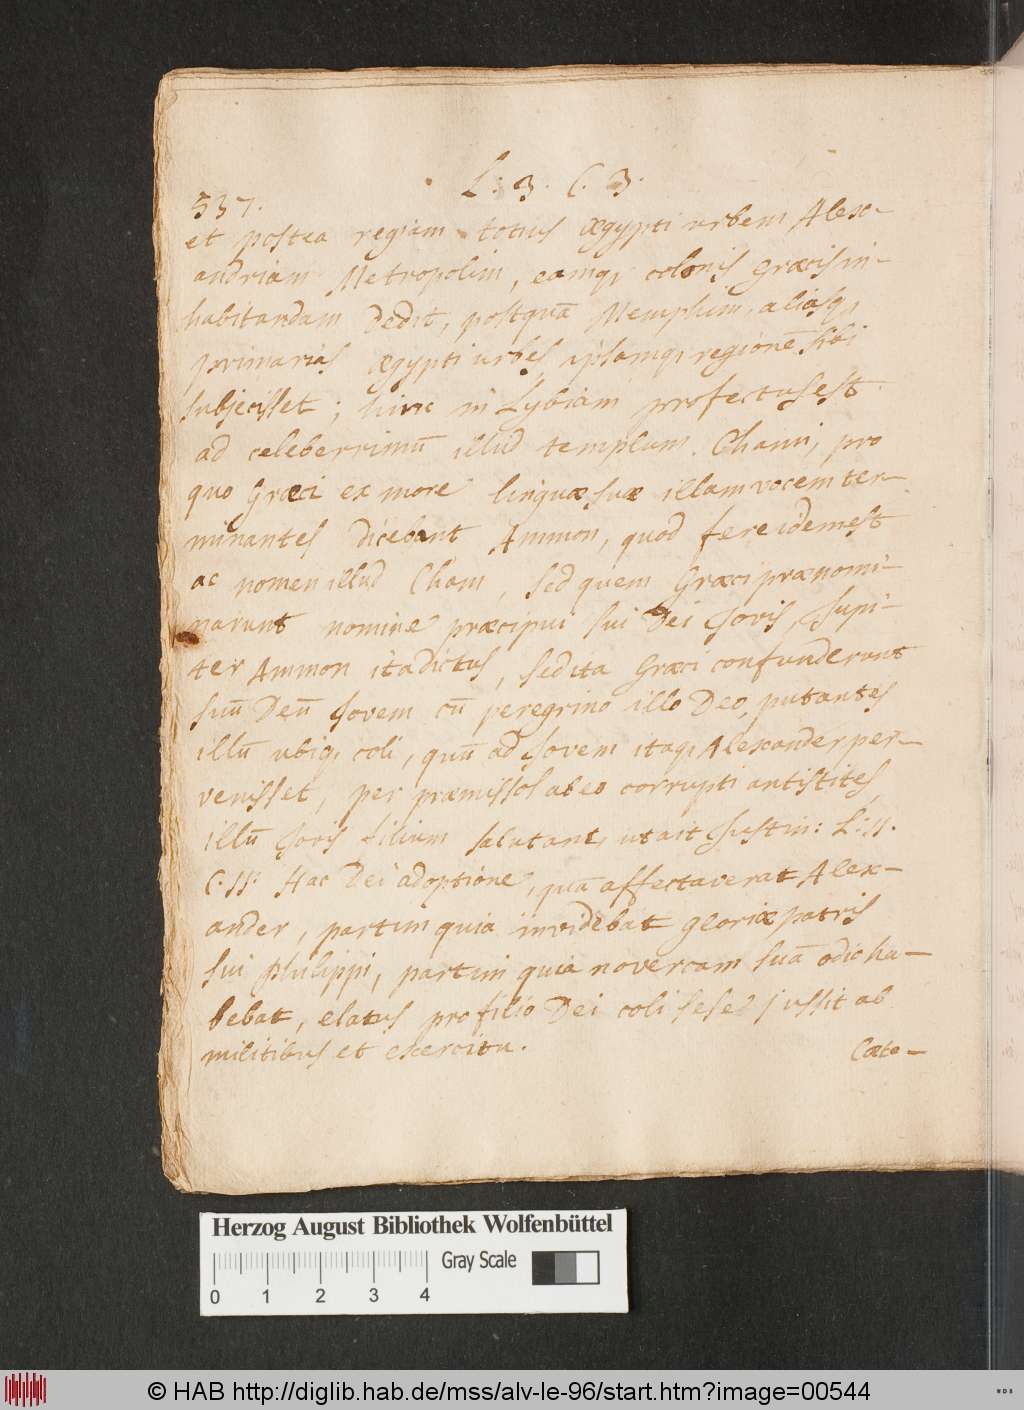 L: 3. C. 3.
537.
et postea regiam totius ægypti urbem Alex-
andriam Metropolim, eamq, colonis Græcis in-
habitandam Dedit, postquā Memphim, aliasq,
primarias ægypti urbes, ipsamq, regionē sibi
subjecisset; hinc in Lybiam profectus est
ad celeberrimū illud templum Chami, pro
quo Græci ex more linguæ suæ illam vocem ter-
minantes dicebant Ammon, quod fere idem est
ac nomen illud Cham, sed quem Græci prænomi-
narunt nomine præcipui sui Dei Jovis, Jupi-
ter Ammon ita dictus, sed ita Græci confunderunt
suū Deū Jovem cū peregrino illo Deo, putantes
illū ubiq, coli, quū ad Jovem itaq, Alexander per-
venisset, per præmissos ab eo corrupti antistites,
illū Jovis filium salutant, ut ait Justin: L: 11.
C. 11. Hac Dei adoptione, quā affectaverat Alex-
ander, partim quia invidebat gloriæ patris
sui Philippi, partim quia novercam suā odio ha-
bebat, elatus pro filio Dei coli sese jussit ab
militibus et exercitu.
Cæte-
Herzog August Bibliothek Wolfenbüttel
Gray Scale
0 1 2 3 4
© HAB http://diglib.hab.de/mss/alv-le-96/start.htm?image=00544